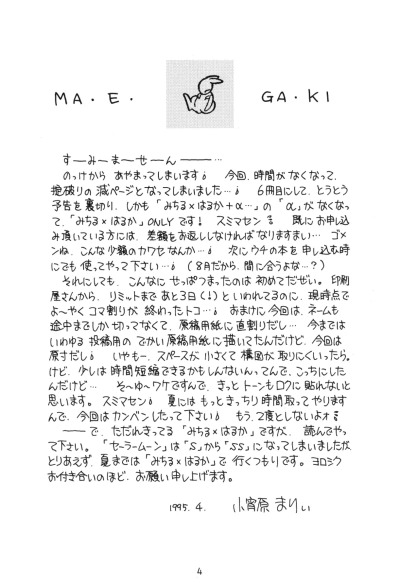 MA・E・GA・KI
すーみーまーせんーー…
のっけから あやまってしまいます。 今回、時間がなくなって、
掟破りの減ページとなってしまいました…。 6冊目にして、とうとう
予告を裏切り、しかも「みちる×はるか+α…」の「α」がなくなっ
て、「みちる×はるか」ONLYです! スミマセン。 既にお申し込
み頂いている方には、差額をお返ししなければなりますまい… ゴメ
ンね、こんな少額のカワセなんか…。 次にウチの本を申し込む時
にでも使ってやって下さい…。 (8月だから、間に合うよな…?)
それにしても、こんなにせっぱつまったのは初めてだぜい。印刷
屋さんから、リミットまであと3日(!)といわれてるのに、現時点で
よ〜やくコマ割りが終わったトコ…。 おまけに今回は、ネームも
途中までしか切ってなくて、原稿用紙に直割りだし… 今までは
いわゆる投稿用のでかい原稿用紙に描いてたんだけど、今回は
原寸だし。 いやもー、スペースが小さくて構図が取りにくいったら。
けど、少しは時間短縮できるかもしんないんってんで、こっちにした
んだけど… そ〜ゆ〜ワケですんで、きっとトーンもロクに貼れないと
思います。 スミマセン。 夏にはもっときっちり時間取ってやります
んで、今回はカンベンしたって下さい。 もう、2度としないよォ。
――で、ただれきってる「みちる×はるか」ですが、読んでやっ
て下さい。「セーラームーン」は「S」から「SS」になってしまいましたが、
とりあえず、夏までは「みちる×はるか」で行くつもりです。ヨロシク
お付き合いのほど、お願い申し上げます。
1995. 4. 小宵原 まりぃ
4